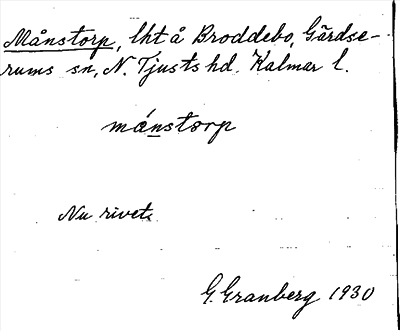 Månstorp, lht å Broddebo, Gärdse-
rums sn, N. Tjusts hd. Kalmar l.
månstorp
Nu rivet.
G. Granberg 1930